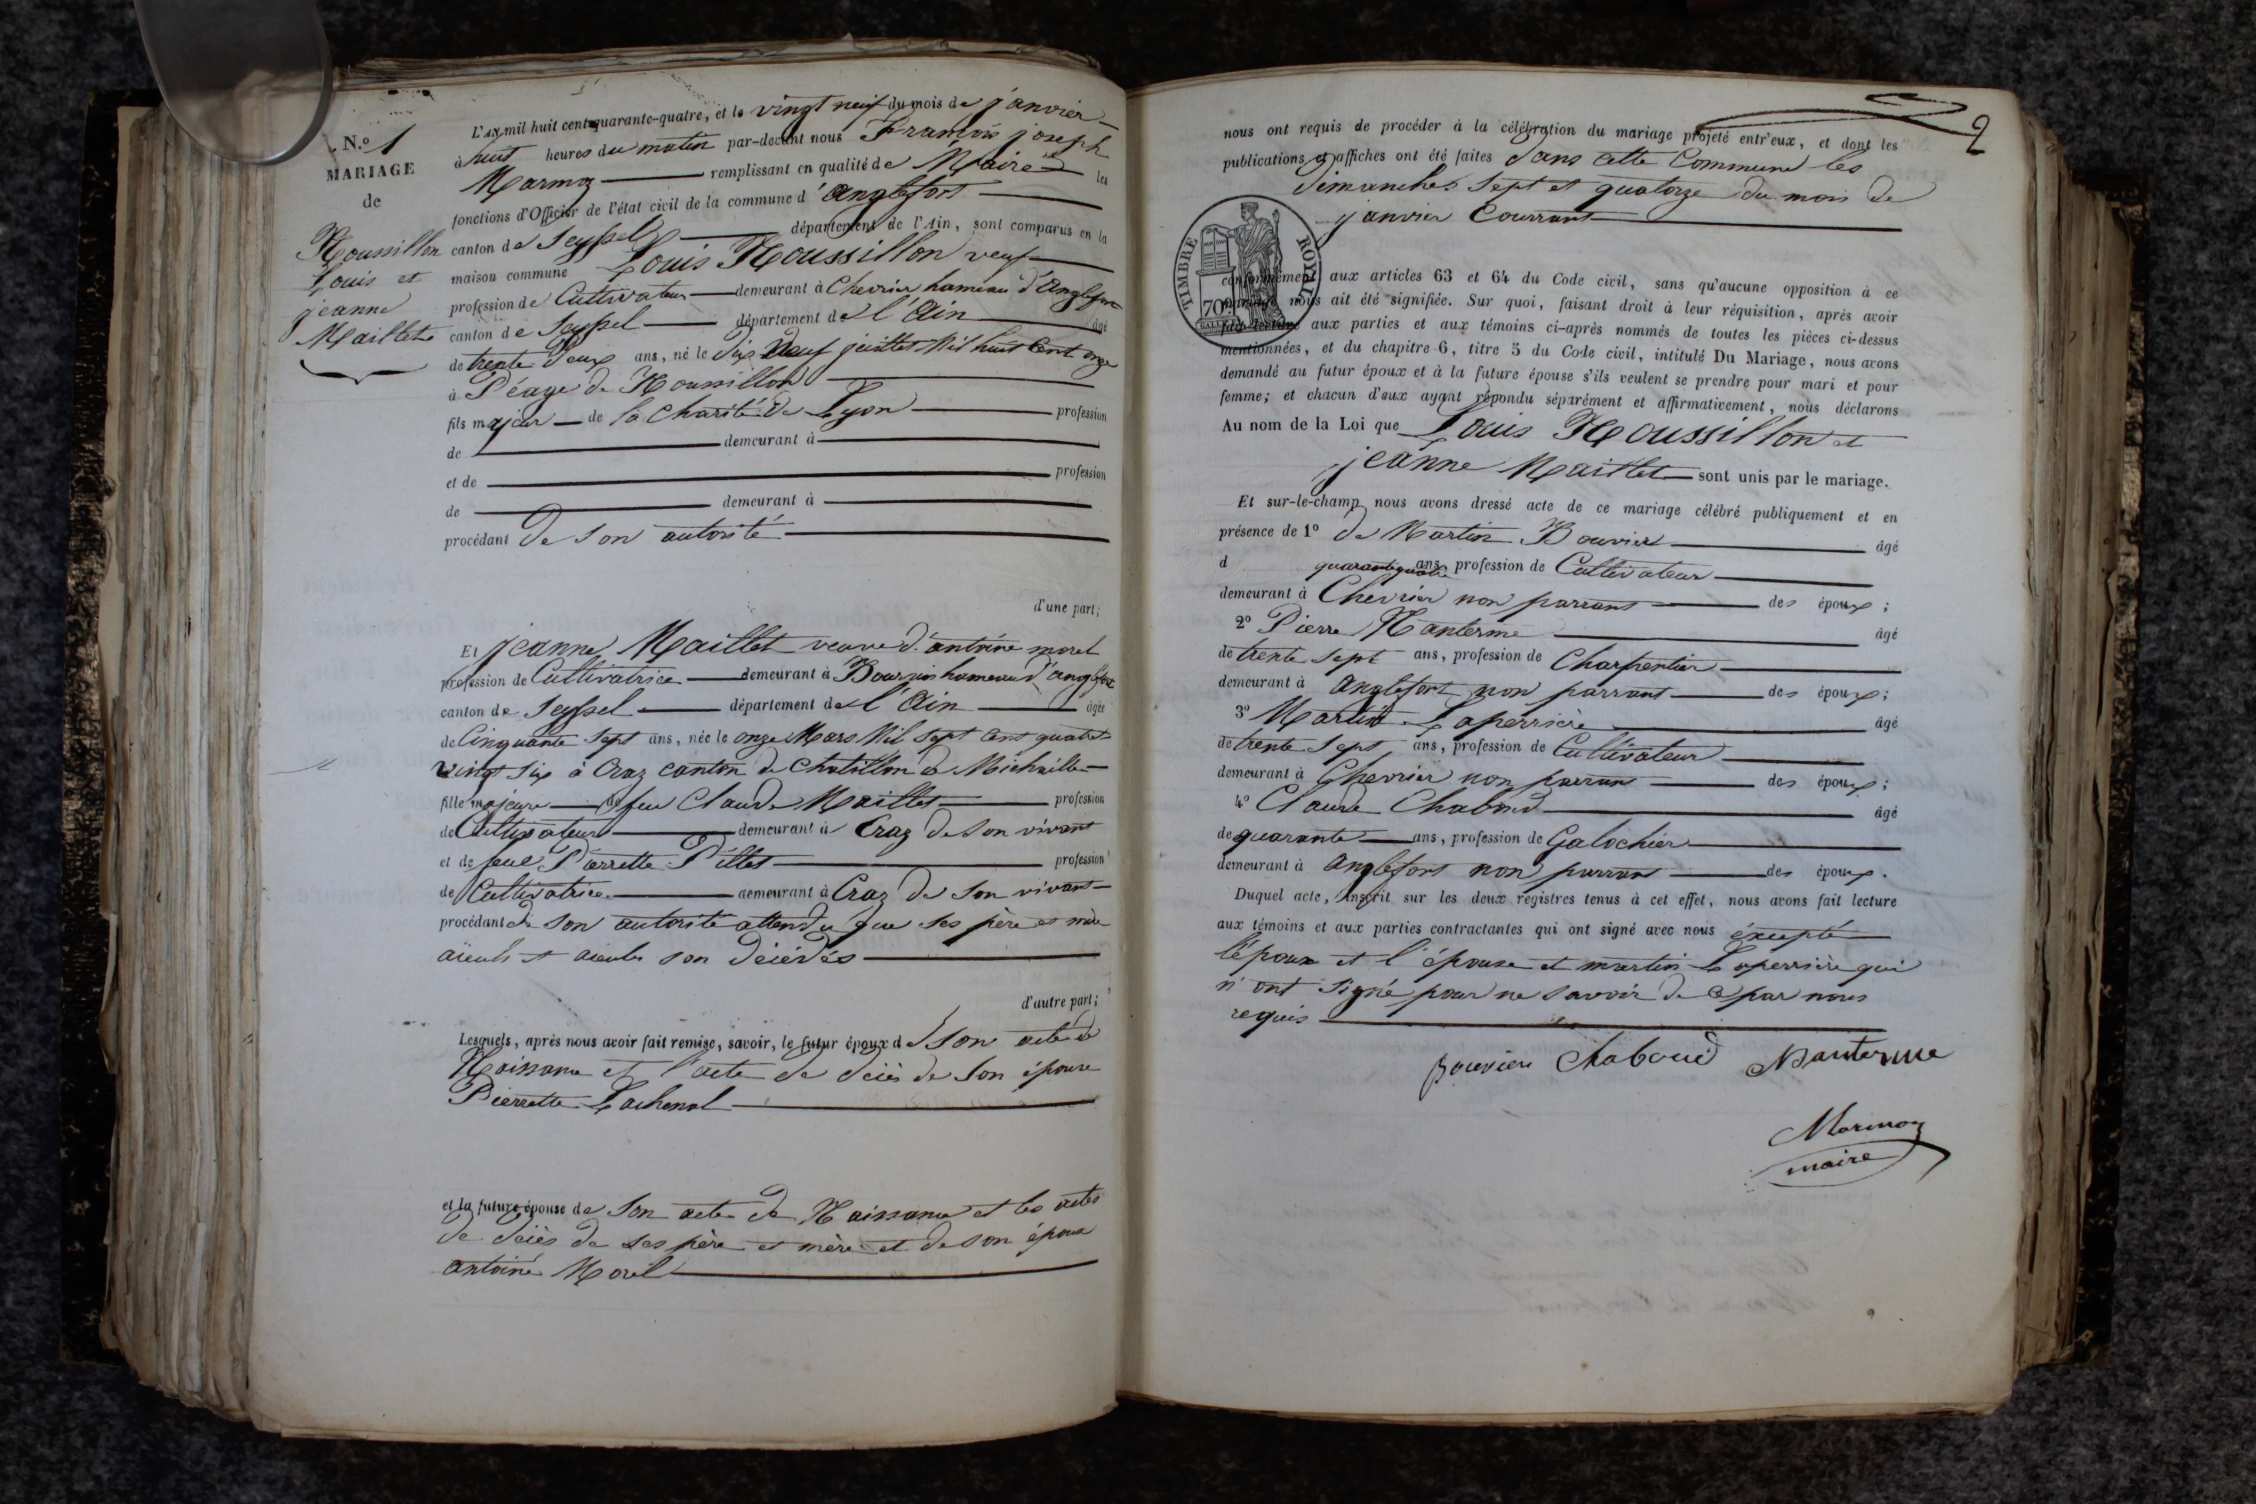 N.o 1
MARIAGE
de
Roussillon
Louis et
jeanne
Maillet
L'AN mil huit cent quarante-quatre, et le vingt neuf du mois de janvier
à huit heures du matin par-devant nous François joseph
Marmoz remplissant en qualité de Maire les
fonctions d'Officier de l'état civil de la commune d'anglefort
canton de Seyssel département de l'Ain, sont comparus en la
maison commune Louis Roussillon veuf
profession de Cultivateur demeurant à Chevrier hameau d'Anglefort
canton de Seyssel département de l'Ain âgé
de trente deux ans, né le dix Neuf juillet Mil huit Cent onze
à Péage de Roussillon
fils majeur de la Charité de Lyon profession
de demeurant à
et de profession
de demeurant à
procédant De son autorité
d'une part;
Et jeanne Maillet veuve d'antoine morel
profession de Cultivatrice demeurant à hameau d'anglefort
canton de Seyssel département de l'Ain âgée
de Cinquante Sept ans, née le onze Mars Mil Sept Cent quatre
vingt six à Craz canton de Chatillon de Michaille
fille majeure de feu Claude Maillet profession
de Cultivateur demeurant à Craz de son vivant
et de feue Pierrette Pillet profession
de Cultivatrice demeurant à Craz de son vivant
procédant de son autorité attendu que ses père et mère
aïeuls et aieules son décédés
d'autre part;
Lesquels, après nous avoir fait remise, savoir, le futur époux de son acte de
Naissance et l'acte de décès de son épouse
Pierrette Lachenal
et la future épouse de son acte de Naissance et les actes
de décès de ses père et mère et de son époux
antoine Morel
2
nous ont requis de procéder à la célébration du mariage projeté entr'eux, et dont les
publications et affiches ont été faites dans cette Commune les
dimanches sept et quatorze du mois de
janvier Courrant
TIMBRE ROYAL
70c.
conformément aux articles 63 et 64 du Code civil, sans qu'aucune opposition à ce
mariage nous ait été signifiée. Sur quoi, faisant droit à leur réquisition, après avoir
fait lecture aux parties et aux témoins ci-après nommés de toutes les pièces ci-dessus
mentionnées, et du chapitre 6, titre 5 du Code civil, intitulé Du Mariage, nous avons
demandé au futur époux et à la future épouse s'ils veulent se prendre pour mari et pour
femme; et chacun d'eux ayant répondu séparément et affirmativement, nous déclarons
Au nom de la Loi que Louis Roussillon et
jeanne Maillet sont unis par le mariage.
Et sur-le-champ nous avons dressé acte de ce mariage célébré publiquement et en
présence de 1o de Martin Bouvier âgé
d quarante quatre ans, profession de Cultivateur
demeurant à Chevrier non parrans des époux;
2o Pierre Nanterme âgé
de trente sept ans, profession de Charpentier
demeurant à Anglefort non parrans des époux;
3o Martin Laperrière âgé
de trente sept, ans, profession de Cultivateur
demeurant à Chevrier non parrans des époux;
4o Claude Chaboud âgé
de quarante ans, profession de Galochier
demeurant à Anglefort non parrans des époux.
Duquel acte, inscrit sur les deux registres tenus à cet effet, nous avons fait lecture
aux témoins et aux parties contractantes qui ont signé avec nous éxcepté
l'époux et l'épouse et martin Laperrière qui
n'ont signé pour ne savoir de ce par nous
requis
Bouvier Chaboud Nanterme
Marmoz
maire